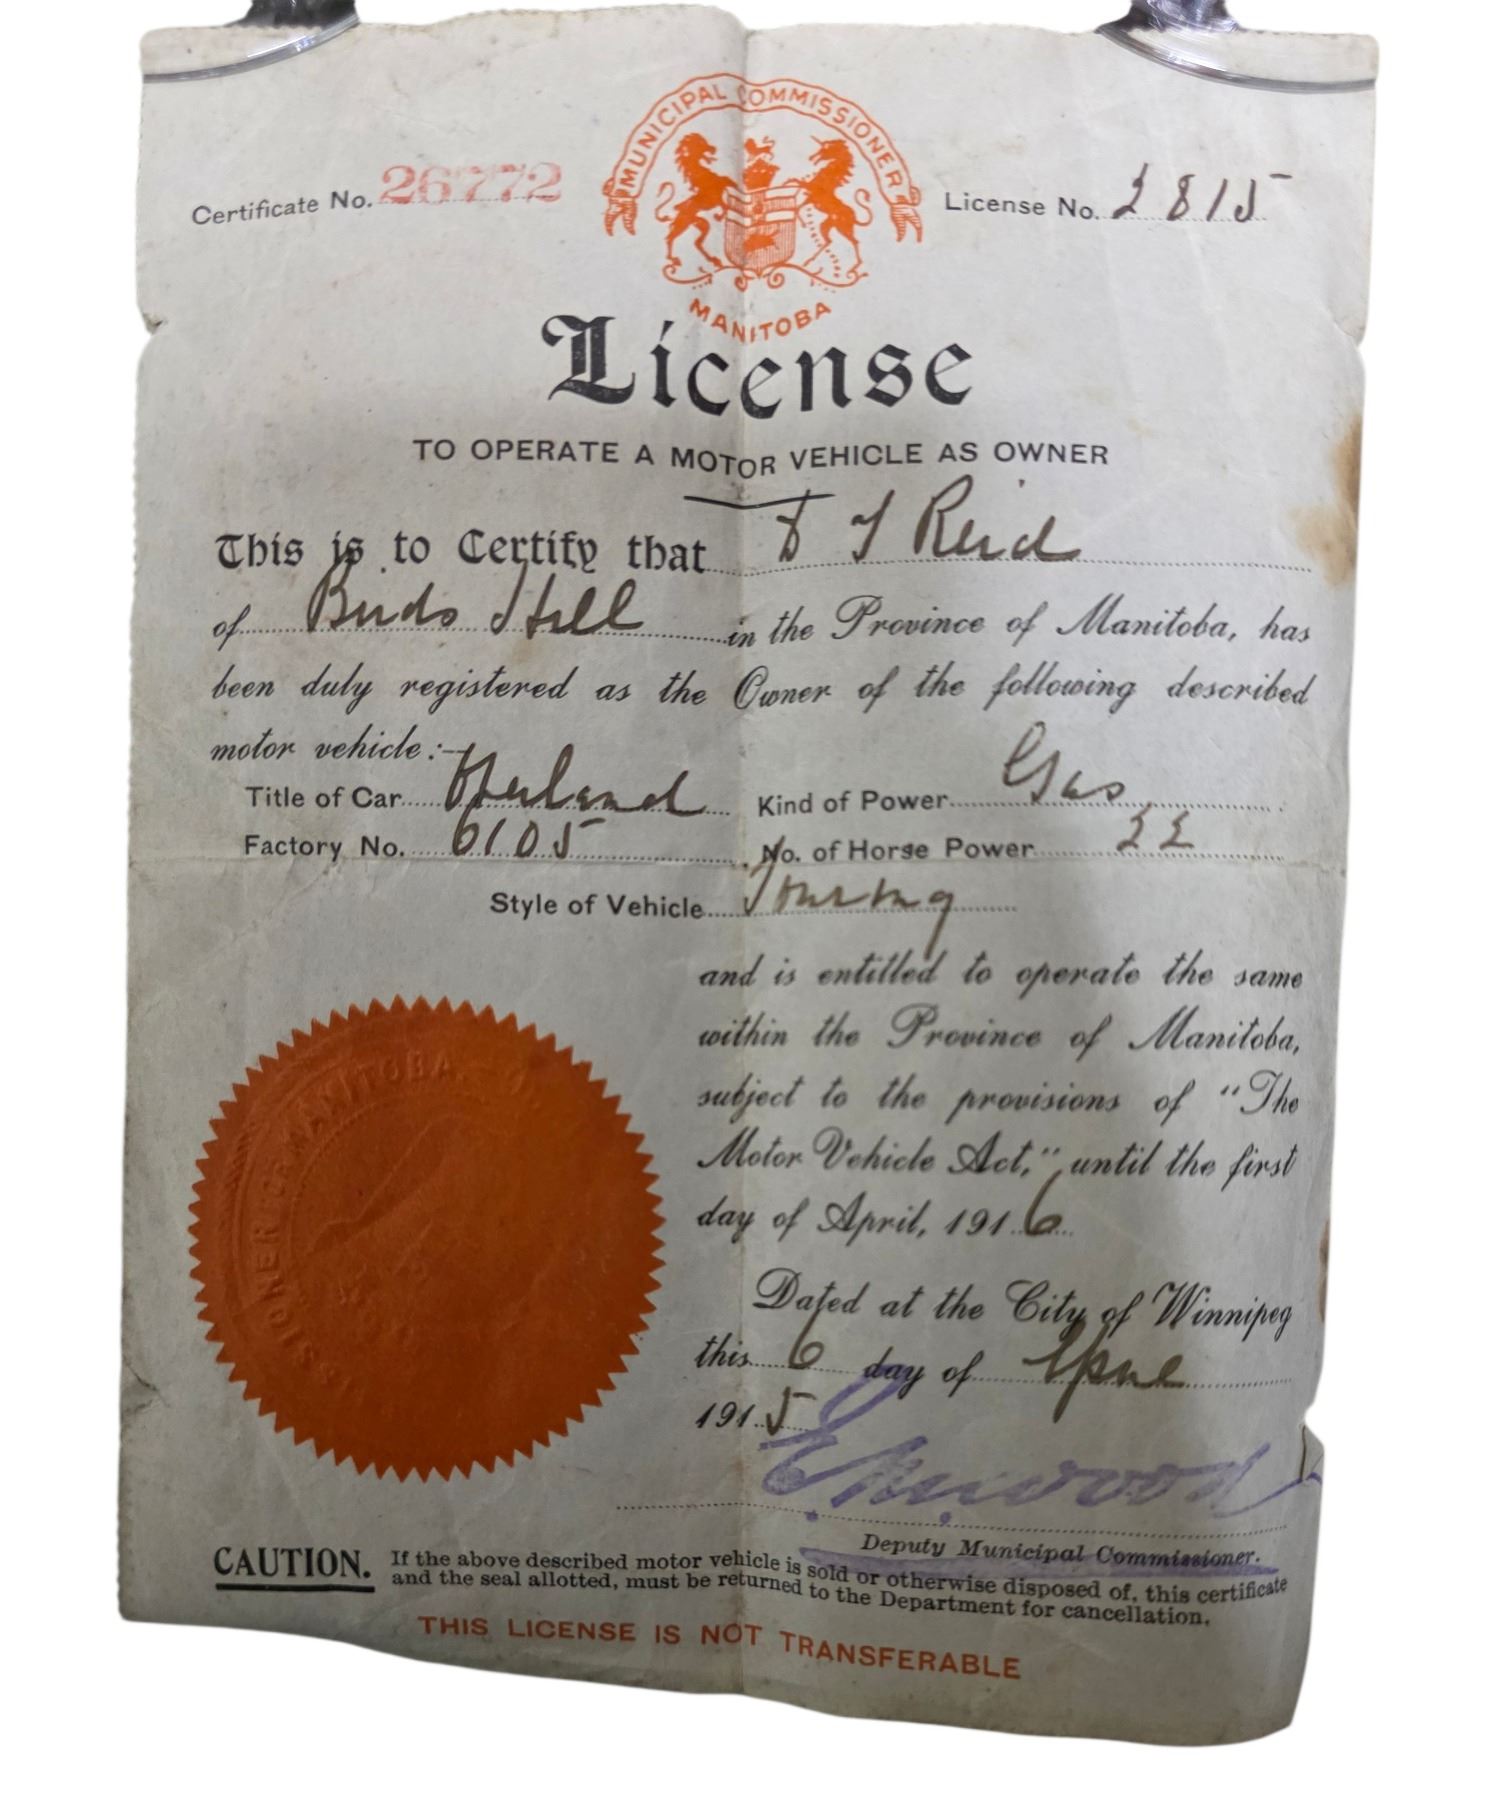 MUNICIPAL COMMISSIONER
MANITOBA
Certificate No. 26772
License No. 2815
License
TO OPERATE A MOTOR VEHICLE AS OWNER
This is to Certify that Reid
of Birds Hill in the Province of Manitoba, has
been duly registered as the Owner of the following described
motor vehicle:—
Title of Car Overland Kind of Power Gas
Factory No. 6105 No. of Horse Power 22
Style of Vehicle Touring
and is entitled to operate the same
within the Province of Manitoba,
subject to the provisions of "The
Motor Vehicle Act," until the first
day of April, 1916
Dated at the City of Winnipeg
this 6 day of
1915
Deputy Municipal Commissioner.
CAUTION. If the above described motor vehicle is sold or otherwise disposed of, this certificate
and the seal allotted, must be returned to the Department for cancellation.
THIS LICENSE IS NOT TRANSFERABLE
MANITOBA